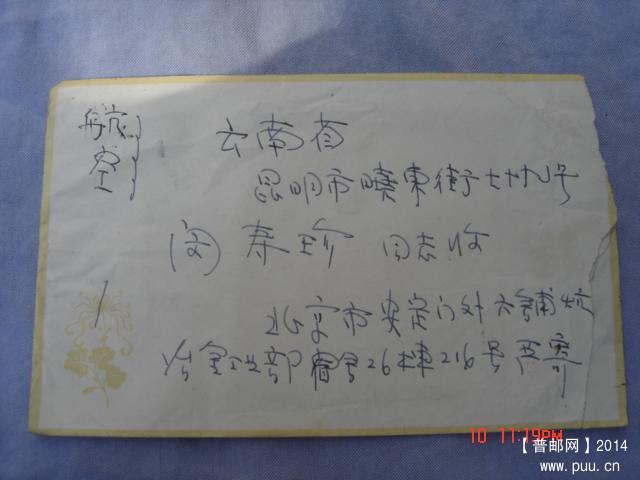 航空
云南省
昆明市曉東街七十九号
闵寿珍 同志收
北京市安定门外六铺炕
冶金工业部宿舍26栋216号 寄
10 11:19PM
【普邮网】2014
www.puu.cn